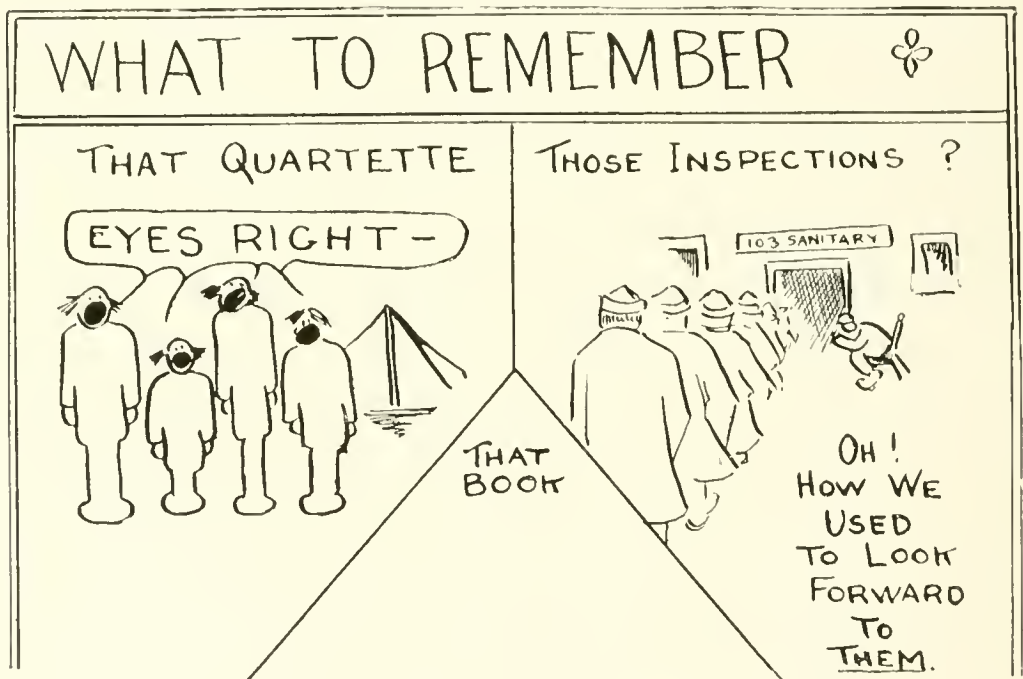 WHAT TO REMEMBER
THAT QUARTETTE
EYES RIGHT-
THOSE INSPECTIONS ?
103 SANITARY
OH!
HOW WE
USED
TO LOOK
FORWARD
TO
THEM.
THAT
BOOK